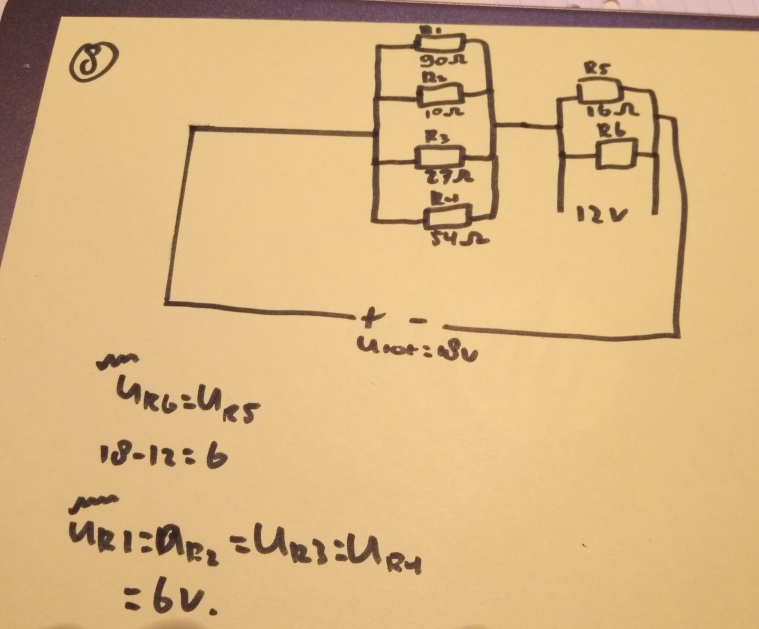 8
R1
90Ω
R2
10Ω
R3
27Ω
R4
54Ω
R5
16Ω
R6
12V
+ -
Utot=18V
UR6=UR5
18-12=6
UR1=UR2=UR3=UR4
=6V.